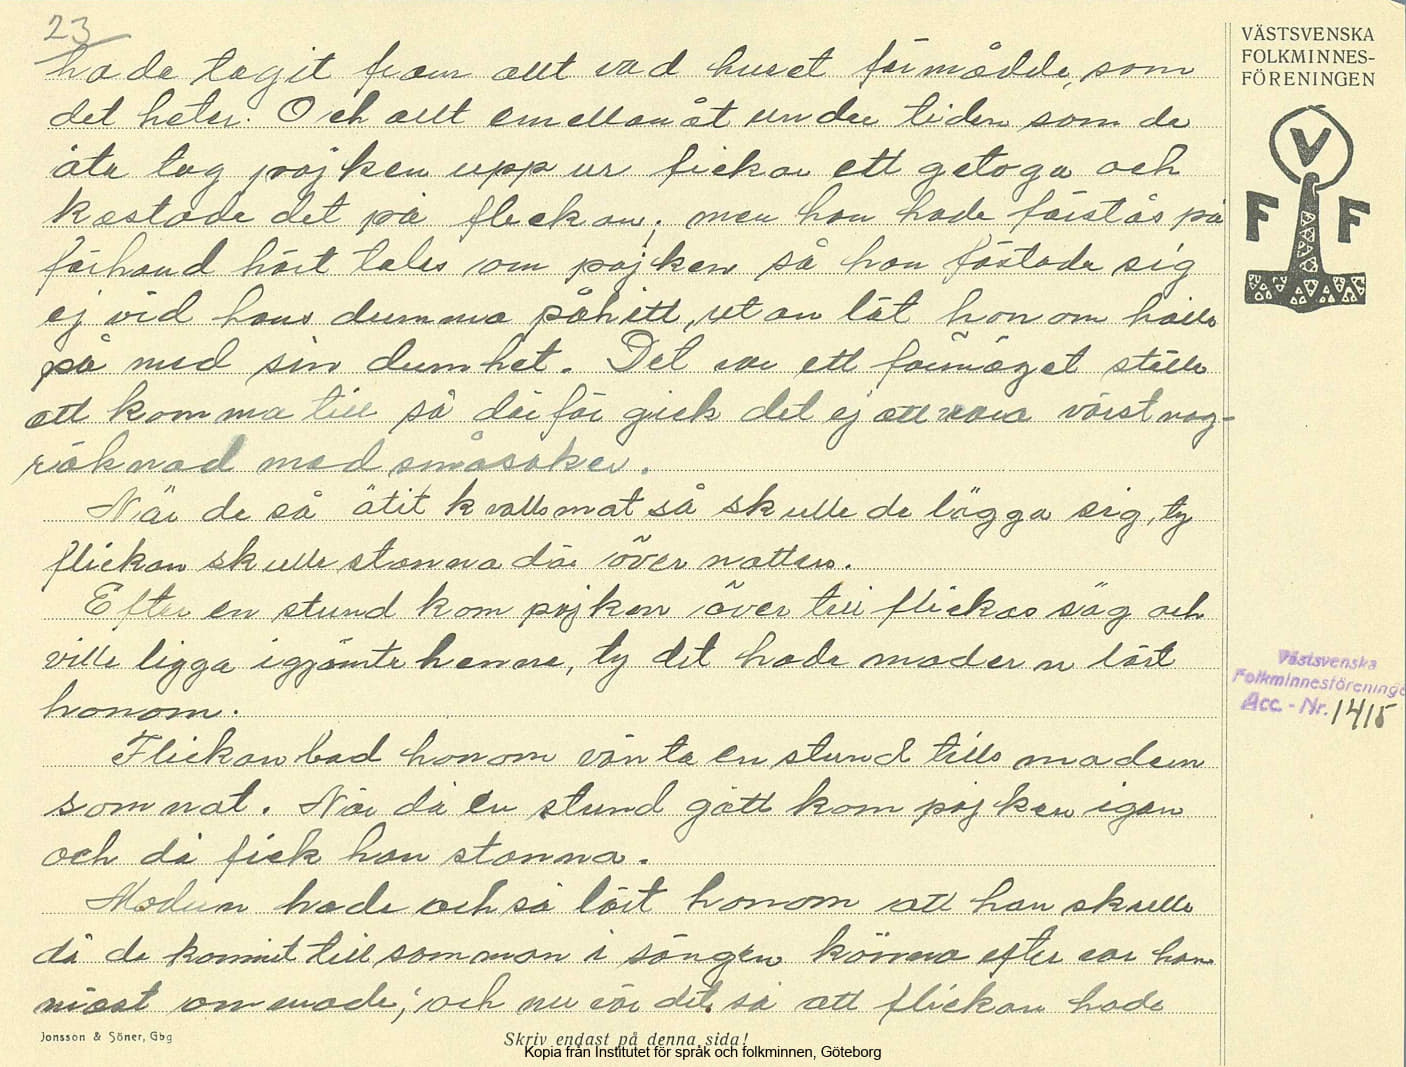 23
hade tagit fram allt vad huset förmådde, som
det heter. Och allt emellanåt under tiden som de
åte tog pojken upp ur fickan ett getöga och
kastade det på flickan; men hon hade förstås på
förhand hört tales om pojken så hon fästade sig
ej vid hans dumma påhitt, utan lät honom hålla
på med sin dumhet. Det var ett förmöget ställe
att komma till så därför gick det ej att vara värst nog-
räknad med småsaker.
När de så ätit kvällsmat så skulle de lägga sig, ty
flickan skulle stanna där över natten.
Efter en stund kom pojken över till flickas säg och
ville ligga igjämte henne, ty det hade modern lärt
honom.
Flickan bad honom vänta en stund tills modern
somnat. När då en stund gått kom pojken igen
och då fick han stanna.
Modern hade också lärt honom att han skulle
då de kommit tillsamman i sängen känna efter var hon
mast om made; och nu var det så att flickan hade
Jonsson & Söner, Gbg
Skriv endast på denna sida!
Kopia från Institutet för språk och folkminnen, Göteborg
VÄSTSVENSKA
FOLKMINNES-
FÖRENINGEN
V
F F
Västsvenska
Folkminnesföreninge
Acc. - Nr. 1415